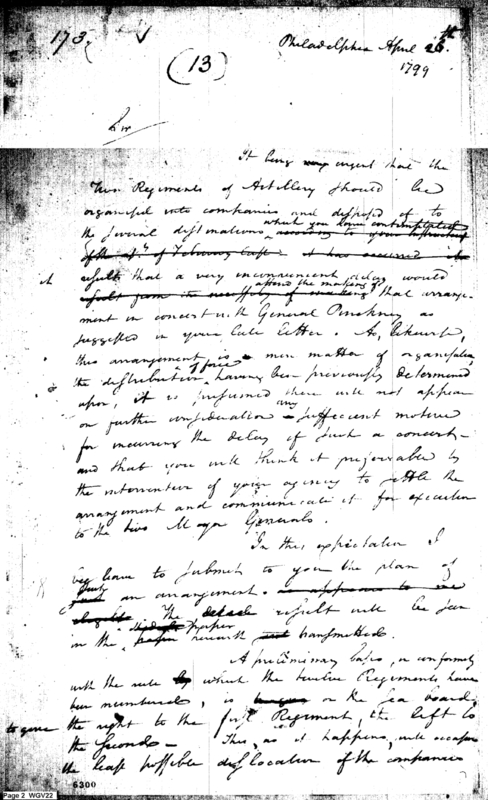 173.
(13)
Philadelphia April 26th.
1799
Sir
It being very urgent that the
Two Regiments of Artillery should be
organised into companies and disposed of to
which you have contemplated
the several destinations according to your
of the of February last it has occurred
it results that a very inconvenient delay would
attend the making of
result from the necessity of making that arrange-
ment in concert with General Pinckney as
suggested in your late letter. As, likewise,
this arrangement is a mere matter of organisation,
of force
the distribution having been previously determined
upon, it is presumed there will not appear
any
on further consideration sufficient motive
for incurring the delay of such a concert—
and that you will think it preferable by
the intervention of your agency to settle the
arrangement and communicate it for execution
to the two Major Generals.
In this expectation I
beg leave to submit to you the plan of
such an arrangement. as appears to me
The detail result will be seen
paper
in the herewith transmitted.
A preliminary basis, in conformity
with the rule by which the twelve Regiments have
been numbered, is on the sea board,
to give the right to the first Regiment, the left to
the second— This, as it happens, will occasion
the least possible dislocation of the companies
6300
Page 2 WGV22